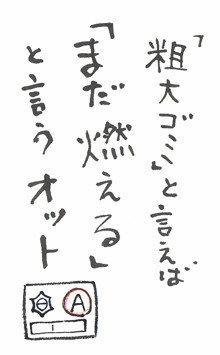 「粗大ゴミ」と言えば
「まだ燃える」
と言うオット
A